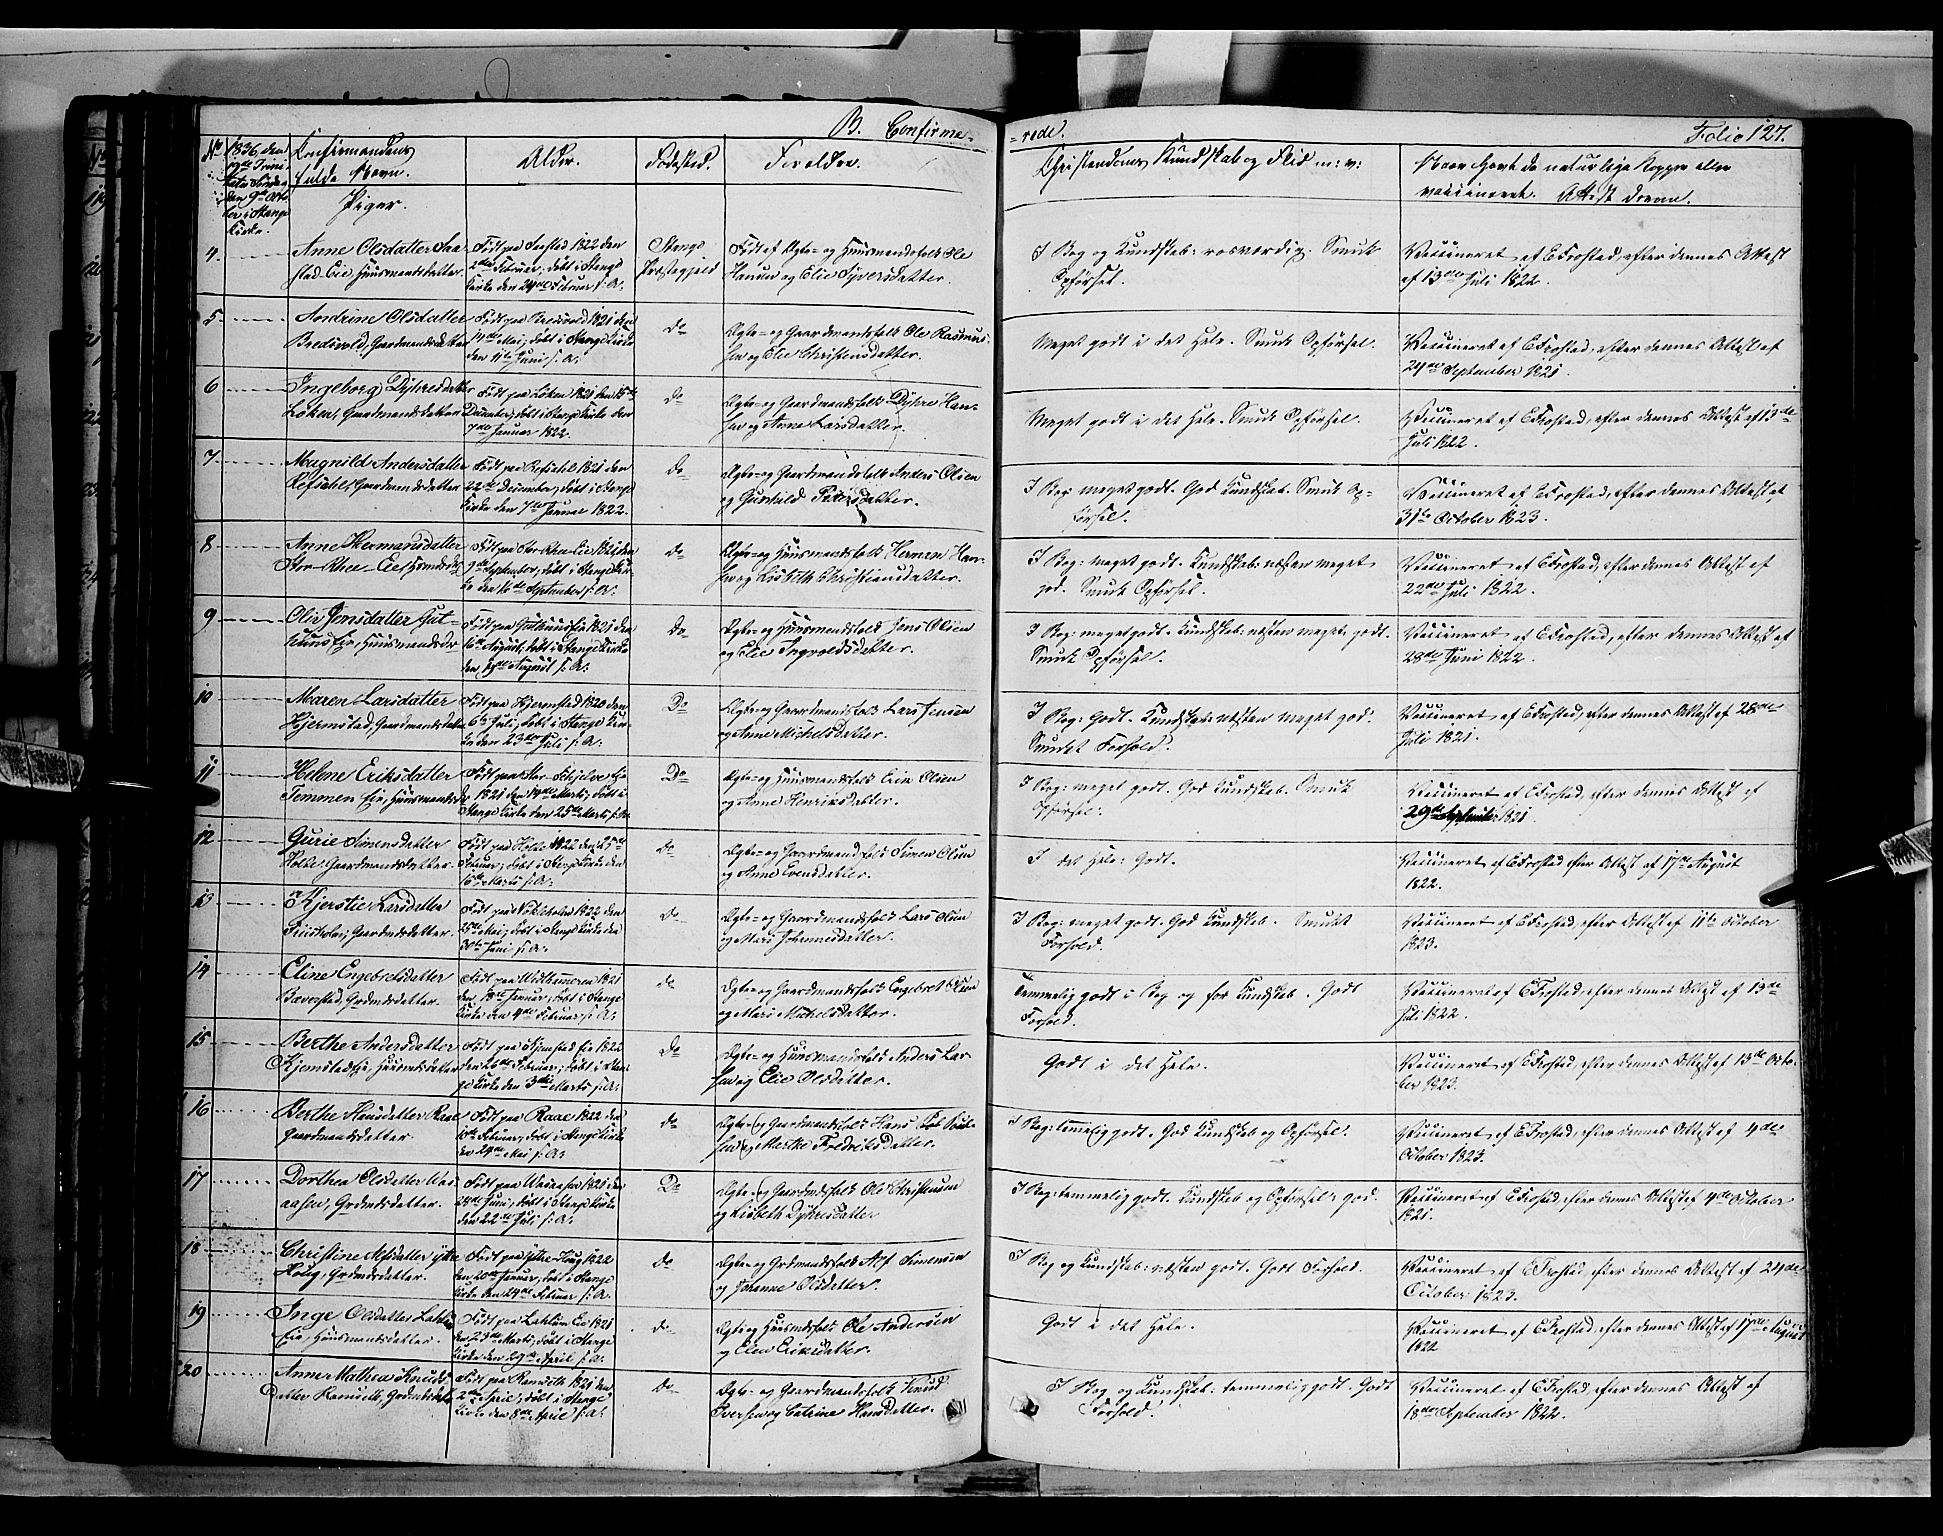 B. Confirme-
-rede.
Folio 127.
No
1836, den
19de Trini-
tatis Søndag
den 9de Octo-
ber i Stange
Kirke.
Confirmandens
fulde Navn.
Piger.
Alder.
Fødested.
Forældre.
Christendoms Kundskab og Flid m: v:
Naar havt de naturlige Kopper eller
vaccineret. Attest derom.
4.
Anne Olsdatter Saa-
stad Eie Huusmandsdatter.
Født paa Saastad 1822 den
2den Februar, døbt i Stange
Kirke den 24de Februar s: A:
Stange
Præstegjeld
Født af Ægte- og Huusmandsfolk Ole
Hansen og Elie Syversdatter.
I Bog og Kundskab: rosværdig. Smuk
Opførsel.
Vaccineret af E Frostad, efter dennes Attest
af 13de Juli 1822.
5
Andrine Olsdatter
Bredvold, Gaardmandsdatter
Født paa Bredvold 1821 den
14de Mai, døbt i Stange Kirke
den 11te Juni s: A:
do
Ægte- og Gaardmandsfolk Ole Rasmus-
sen og Elie Christensdatter.
Meget godt i det Hele. Smuk Opførsel.
Vaccineret af E Frostad, efter dennes Attest af
24de September 1821.
6
Ingeborg Dyhresdatter
Løken, Gaardmandsdatter
Født paa Løken 1821 den 15de
December, døbt i Stange Kirke den
7de Januar 1822.
do
Ægte- og Gaardmandsfolk Dyhre Han-
sen og Anne Larsdatter.
Meget godt i det Hele. Smuk Opførsel.
Vaccineret af E Frostad, efter dennes Attest af 13de
Juli 1822
7
Magnild Andersdatter
Refsahl, Gaardmandsdatter
Født paa Refsahl 1821 den
22de December, døbt i Stange
Kirke den 7de Januar 1822.
do
Ægte- og Gaardmandsfolk Anders Olsen
og Gunhild Pedersdatter.
I Bog: meget godt. God Kundskab. Smuk Op-
førsel.
Vaccineret af E Frostad, efter dennes Attest af
31te October 1823.
8
Anne Hermansdatter
Stor-Rhee Eie Hsmandsd:
Født paa Stor-Rhee Eie 1821 den
9de September, døbt i Stange Kir-
ke den 16de September s: A:
do
Ægte- og Huusmandsfolk Herman Han-
sen og Lisbeth Christiansdatter.
I Bog: meget godt. Kundskab: næsten meget
god. Smuk Opførsel.
Vaccineret af E Frostad, efter dennes Attest af
22de Juli 1822.
9
Olie Jensdatter Gut-
huus Eie, Huusmandsdr
Født paa Guthuus Eie 1821 den
Stange Kirke
August s: A:
Do
Ægte- og Huusmandsfolk Jens Olsen
og Elie Ingvoldsdatter.
I Bog: meget godt. Kundskab: næsten meget godt.
Smuk Opførsel.
Vaccineret af E Frostad, efter dennes Attest af
28de Juni 1822.
10
Maren Larsdatter
Hjermstad, Gaardmandsdatter
Født paa Hjermstad 1820 den
6te Juli, døbt i Stange Kir-
ke den 23de Juli s: A:
Do
Ægte- og Gaardmandsfolk Lars Jensen
og Anne Michelsdatter.
I Bog: godt. Kundskab: næsten meget god.
Smukt Forhold.
Vaccineret af E Frostad, efter dennes Attest af 28de
Juli 1821.
11
Helene Eriksdatter
Temmen Eie, Huusmandsdr
Født paa Stor-Schjelve Eie
1821 den 14de Marts, døbt i
Stange Kirke den 25de Marts s: A:
Do
Ægte- og Huusmandsfolk Erik Olsen
og Anne Henriksdatter.
I Bog: meget godt. God Kundskab. Smuk
Opførsel.
Vaccineret af E Frostad, efter dennes Attest af
29de September 1821.
12
Gurie Simensdatter
Holte, Gaardmandsdatter.
Født paa Holte 1822 den 25de
Januar, døbt i Stange Kirke den
Marts s: A:
do
Ægte- og Gaardmandsfolk Simen Olsen
og Anne Svendsdatter.
I det Hele: Godt.
Vaccineret af E Frostad efter Attest af 17de August
1822.
13
Kjerstie Larsdatter
Gaardmdsdatter.
Født paa 1822 den
25de Mai, døbt i Stange Kirke den
30te Juni s: A:
do
Ægte- og Gaardmandsfolk Lars Olsen
og Mari Johannesdatter.
I Bog: meget godt. God Kundskab. Smukt
Forhold.
Vaccineret af E Frostad, efter Attest af 11te October
1823.
14
Eline Engebretsdatter
Bæverstad, Grdmdsdatter.
Født paa Widhammeren 1821
den Januar, døbt i Stange
Kirke den 4de Februar s: A:
do
Ægte- og Gaardmandsfolk Engebret Olsen
og Mari Michelsdatter.
Temmelig godt i Bog og for Kundskab. Godt
Forhold.
Vaccineret af E Frostad, efter dennes Attest af 13de
Juli 1822.
15
Berthe Andersdatter
Kjemstad Eie, Huusmdsdatter
Født paa Kjemstad Eie 1822
den Februar, døbt i Stan-
ge Kirke den 3die Marts s: A:
Do
Ægte- og Huusmandsfolk Anders Lar-
sen og Elie Olsdatter.
Godt i det Hele.
Vaccineret af E Frostad, efter dennes Attest af 13de Octo-
ber 1823.
16
Berthe Hansdatter Raae
Gaardmandsdatter.
Født paa Raae 1822 den
10de Februar, døbt i Stange Kirke
den Mai s: A:
do
Ægte- og Gaardmandsfolk Hans
sen og Marthe Fredriksdatter.
I Bog: temmelig godt. God Kundskab og Opførsel.
Vaccineret af E Frostad, efter dennes Attest af 4de
October 1823.
17
Dorthea Olsdatter Wei-
aasen, Grdmdsdatter.
Født paa Weiaasen 1821 den
24de Juni, døbt i Stange Kirke
den 22de Juli s: A:
Do
Ægte- og Gaardmdsfolk Ole Christensen
og Lisbeth Dyhresdatter
I Bog: temmelig godt. Kundskab og Opførsel: god.
Vaccineret af E Frostad, efter dennes Attest af 4de October
1821.
18
Christine Alfsdatter Ytre
Houg, Grdmdsdatter.
Født paa Ytre-Houg 1822
den 20de Januar, døbt i Stange
Kirke den 24de Februar s: A:
do
Ægte- og Grdmandsfolk Alf Simensen
og Johanne Olsdatter.
I Bog og Kundskab: næsten godt. Godt Forhold.
Vaccineret af E Frostad, efter dennes Attest af 24de
October 1823.
19
Inge Olsdatter Lahlum
Eie, Huusmandsdatter.
Født paa Lahlum Eie 1821
den 23de Marts, døbt i Stange
Kirke den 29de April s: A:
do
Ægte- og Huusmdsfolk Ole Andersen
og Elen Eriksdatter.
Godt i det Hele.
Vaccineret af E Frostad, efter dennes Attest af 17de August
1822
20
Anne Mathea Knuds-
datter Ramseth, Grdmdsdatter
Født paa Ramseth 1821 den
2den April, døbt i Stange
Kirke den 8de April s: A:
Do
Ægte- og Gaardmandsfolk Knud
Iversen og Catrine Hansdatter.
I Bog og Kundskab: temmelig godt. Godt
Forhold.
Vaccineret af E Frostad, efter dennes Attest af
18de September 1822.